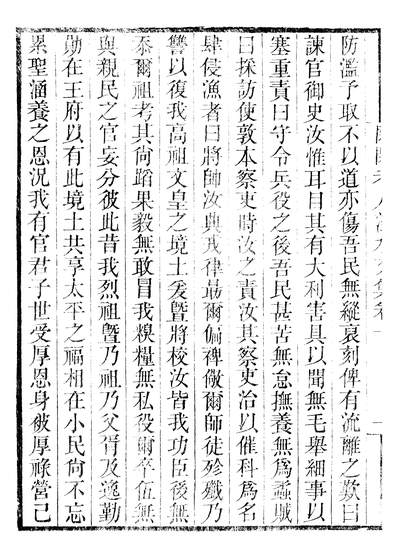 防濫予取不以道亦傷吾民無縱哀刻俾有流離之歎曰
諫官御史汝惟耳目其有大利害具以聞無毛舉細事以
塞重責曰守令兵役之後吾民甚苦無怠撫養無為蟊賊
曰採訪使敦本察吏時汝之責汝其察吏治以催科為名
肆侵漁者曰將師汝與戎律勗爾偏裨儆爾師徒殄殲乃
讐以復我高祖文皇之境土爰曁將校汝皆我功臣後無
忝爾祖考其尚蹈果毅無敢冒我糗糧無私役爾卒伍無
與親民之官妄分彼此昔我烈祖曁乃祖乃父胥及逸勤
勛在王府以有此境土共享太平之福相在小民尚不忘
累聖涵養之恩況我有官君子世受厚恩身彼厚祿營己